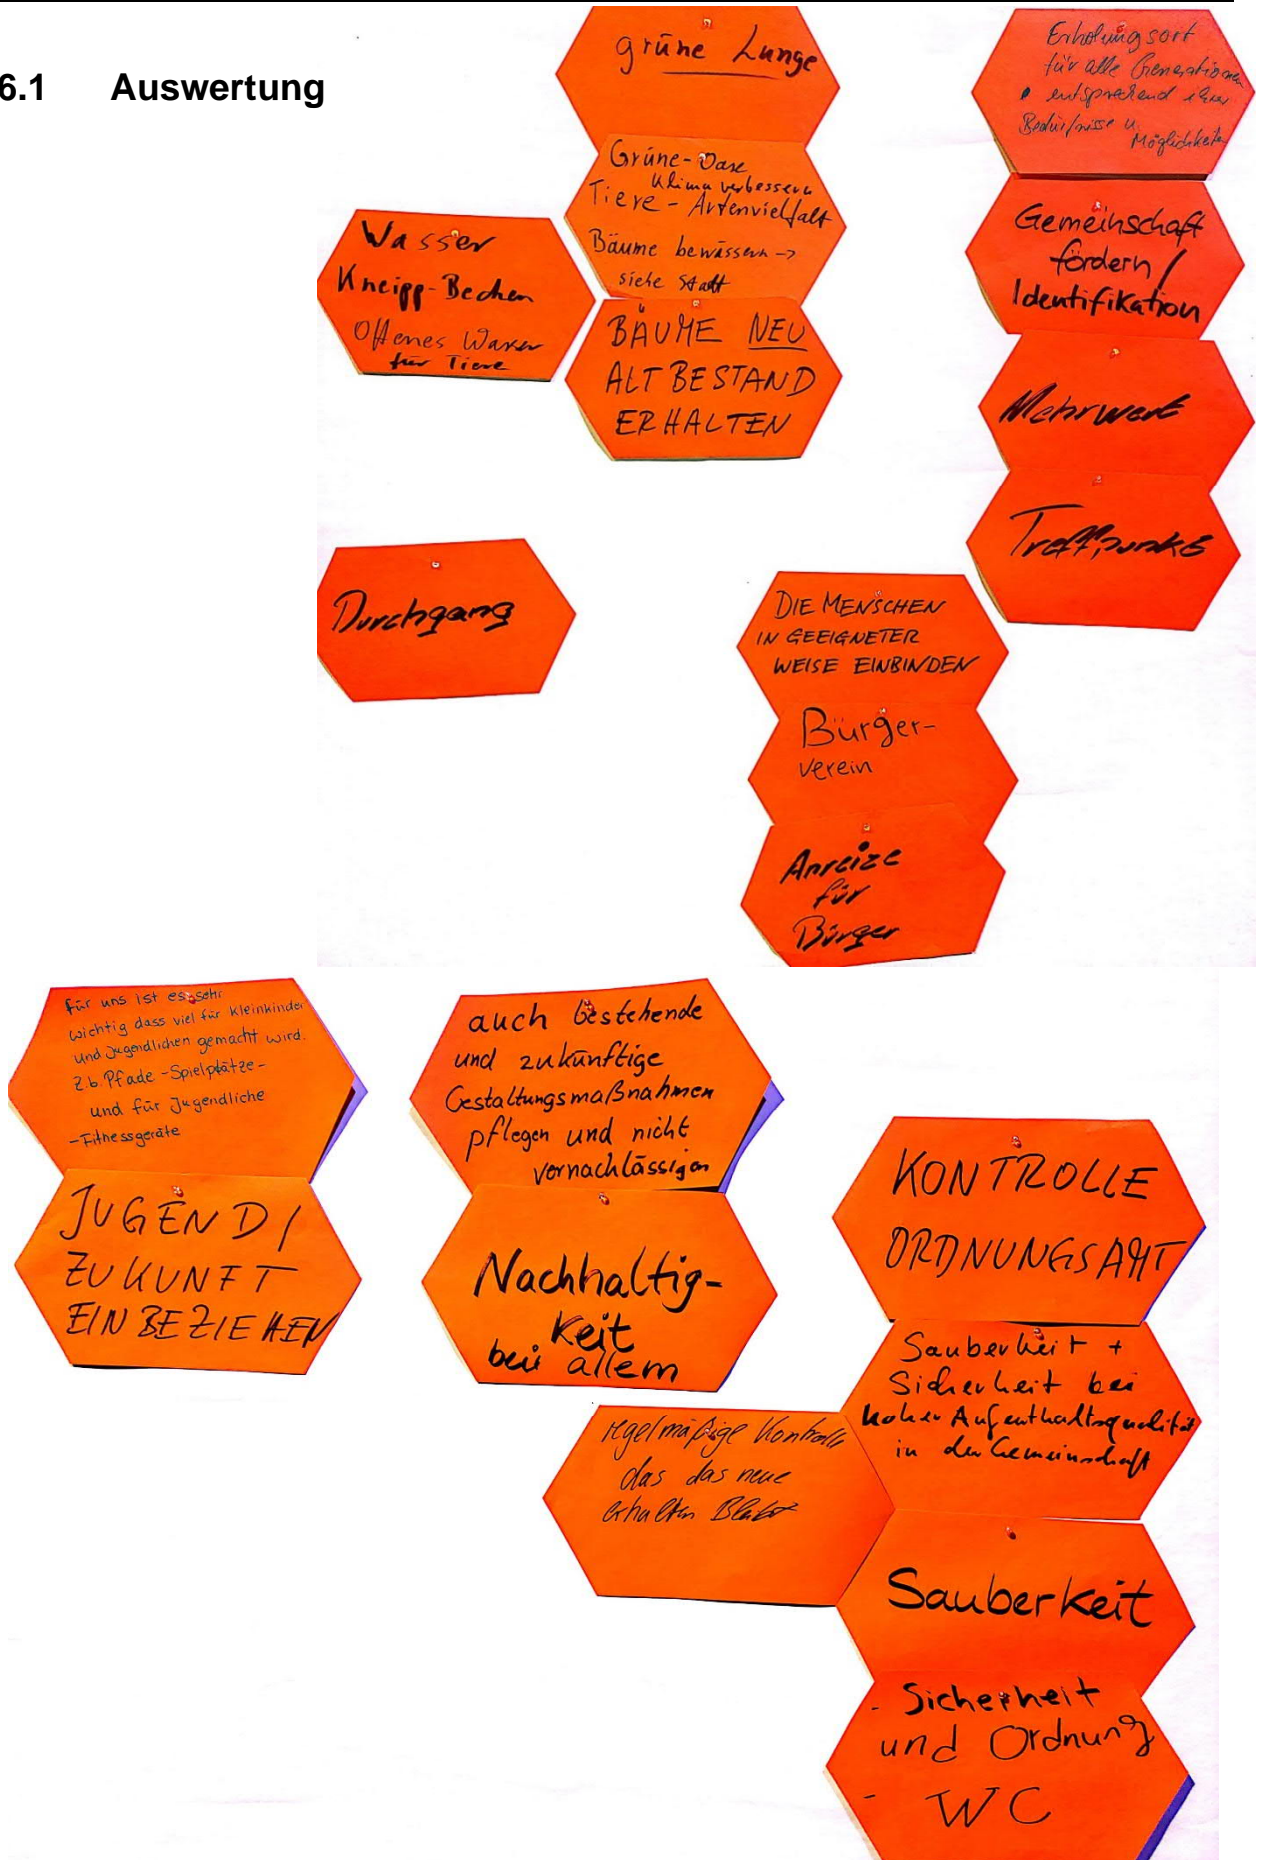 6.1 Auswertung
grüne Lunge
Grüne-Oase
Klima verbessern
Tiere - Artenvielfalt
Bäume bewässern ->
siehe Stadt
BÄUME NEU
ALTBESTAND
ERHALTEN
Wasser
Kneipp-Becken
Offenes Wasser
für Tiere
Erholungsort
für alle Generationen
• entsprechend ihrer
Bedürfnisse u.
Möglichkeiten
Gemeinschaft
fördern /
Identifikation
Mehrwert
Treffpunkt
Durchgang
DIE MENSCHEN
IN GEEIGNETER
WEISE EINBINDEN
Bürger-
verein
Anreize
für
Bürger
für uns ist es sehr
wichtig dass viel für Kleinkinder
und Jugendlichen gemacht wird.
z.b. Pfade - Spielplätze -
und für Jugendliche
- Fitnessgeräte
JUGEND /
ZUKUNFT
EINBEZIEHEN
auch bestehende
und zukünftige
Gestaltungsmaßnahmen
pflegen und nicht
vernachlässigen
Nachhaltig-
keit
bei allem
KONTROLLE
ORDNUNGSAMT
Sauberkeit +
Sicherheit bei
hoher Aufenthaltsqualität
in der Gemeinschaft
regelmäßige Kontrolle
das das neue
erhalten Bleibt
Sauberkeit
- Sicherheit
und Ordnung
- WC